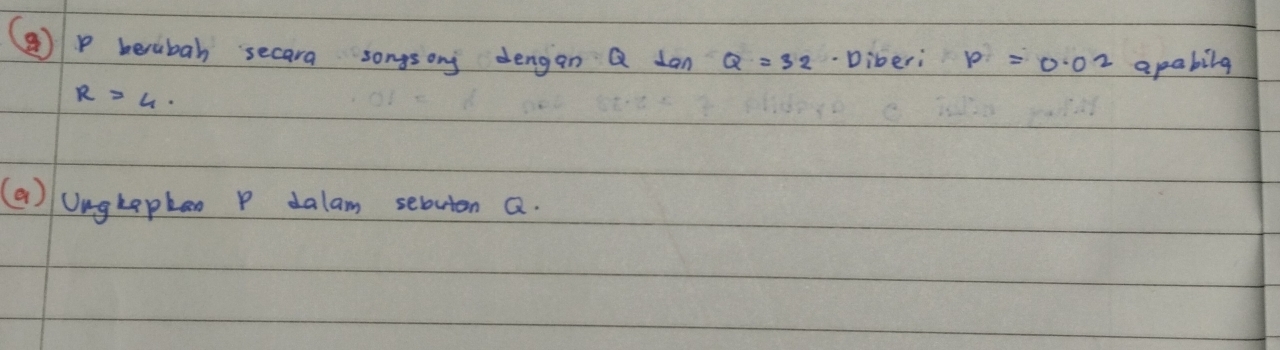 (9) P berubah secara songsong dengan Q dan Q = 32 . Diberi P = 0.02 apabila
R = 4 .
(a) Ungkapkan P dalam sebutan Q .